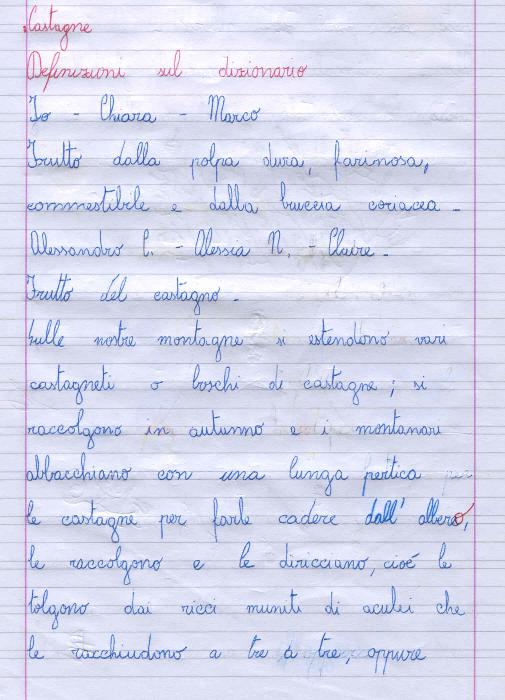 Castagne
Definizioni sul dizionario
Io - Chiara - Marco
Frutto dalla polpa dura, farinosa,
commestibile e dalla buccia coriacea -
Alessandro C. - Alessia N. - Claire -
Frutto del castagno -
Sulle nostre montagne si estendono vari
castagneti o boschi di castagne; si
raccolgono in autunno e i montanari
abbacchiano con una lunga pertica per
le castagne per farle cadere dall' albero,
le raccolgono e le diricciano, cioé le
tolgono dai ricci muniti di aculei che
le racchiudono a tre a tre, oppure